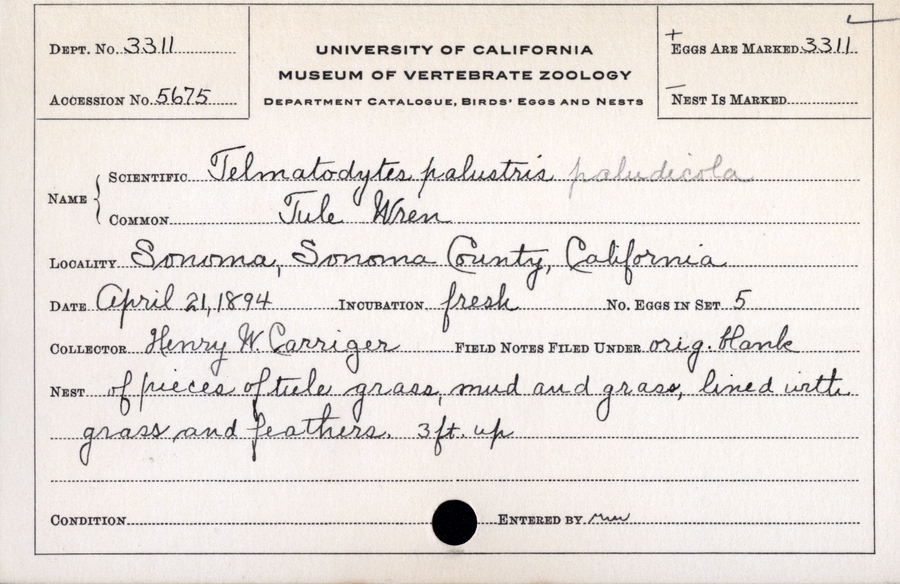 Dept. No. 3311
Accession No. 5675
UNIVERSITY OF CALIFORNIA
MUSEUM OF VERTEBRATE ZOOLOGY
Department Catalogue, Birds' Eggs and Nests
+
Eggs Are Marked 3311
—
Nest Is Marked
Name { Scientific Telmatodytes palustris paludicola
Common Tule Wren
Locality Sonoma, Sonoma County, California
Date April 21, 1894 Incubation fresh No. Eggs in Set 5
Collector Henry W. Carriger Field Notes Filed Under orig. blank
Nest of pieces of tule grass, mud and grass, lined with
grass and feathers. 3 ft. up
Condition Entered by